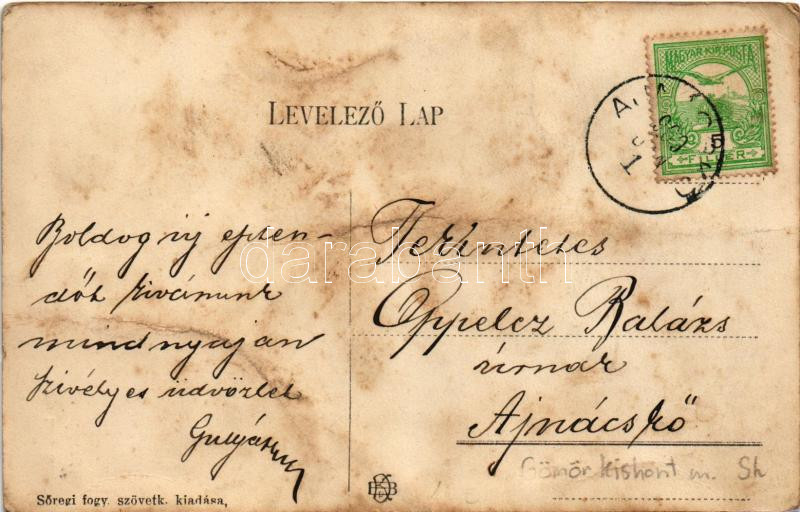 MAGYAR KIR. POSTA
5
FILLÉR
LEVELEZŐ LAP
Boldog új eszten-
dőt kivánunk
mindnyájan
szivélyes üdvözlet
Gulyás
Tekintetes
Oppelcz Balázs
úrnak
Ajnácskő
Gömör kishont m. Sk
darabanth
Sőregi fogy. szövetk. kiadása,